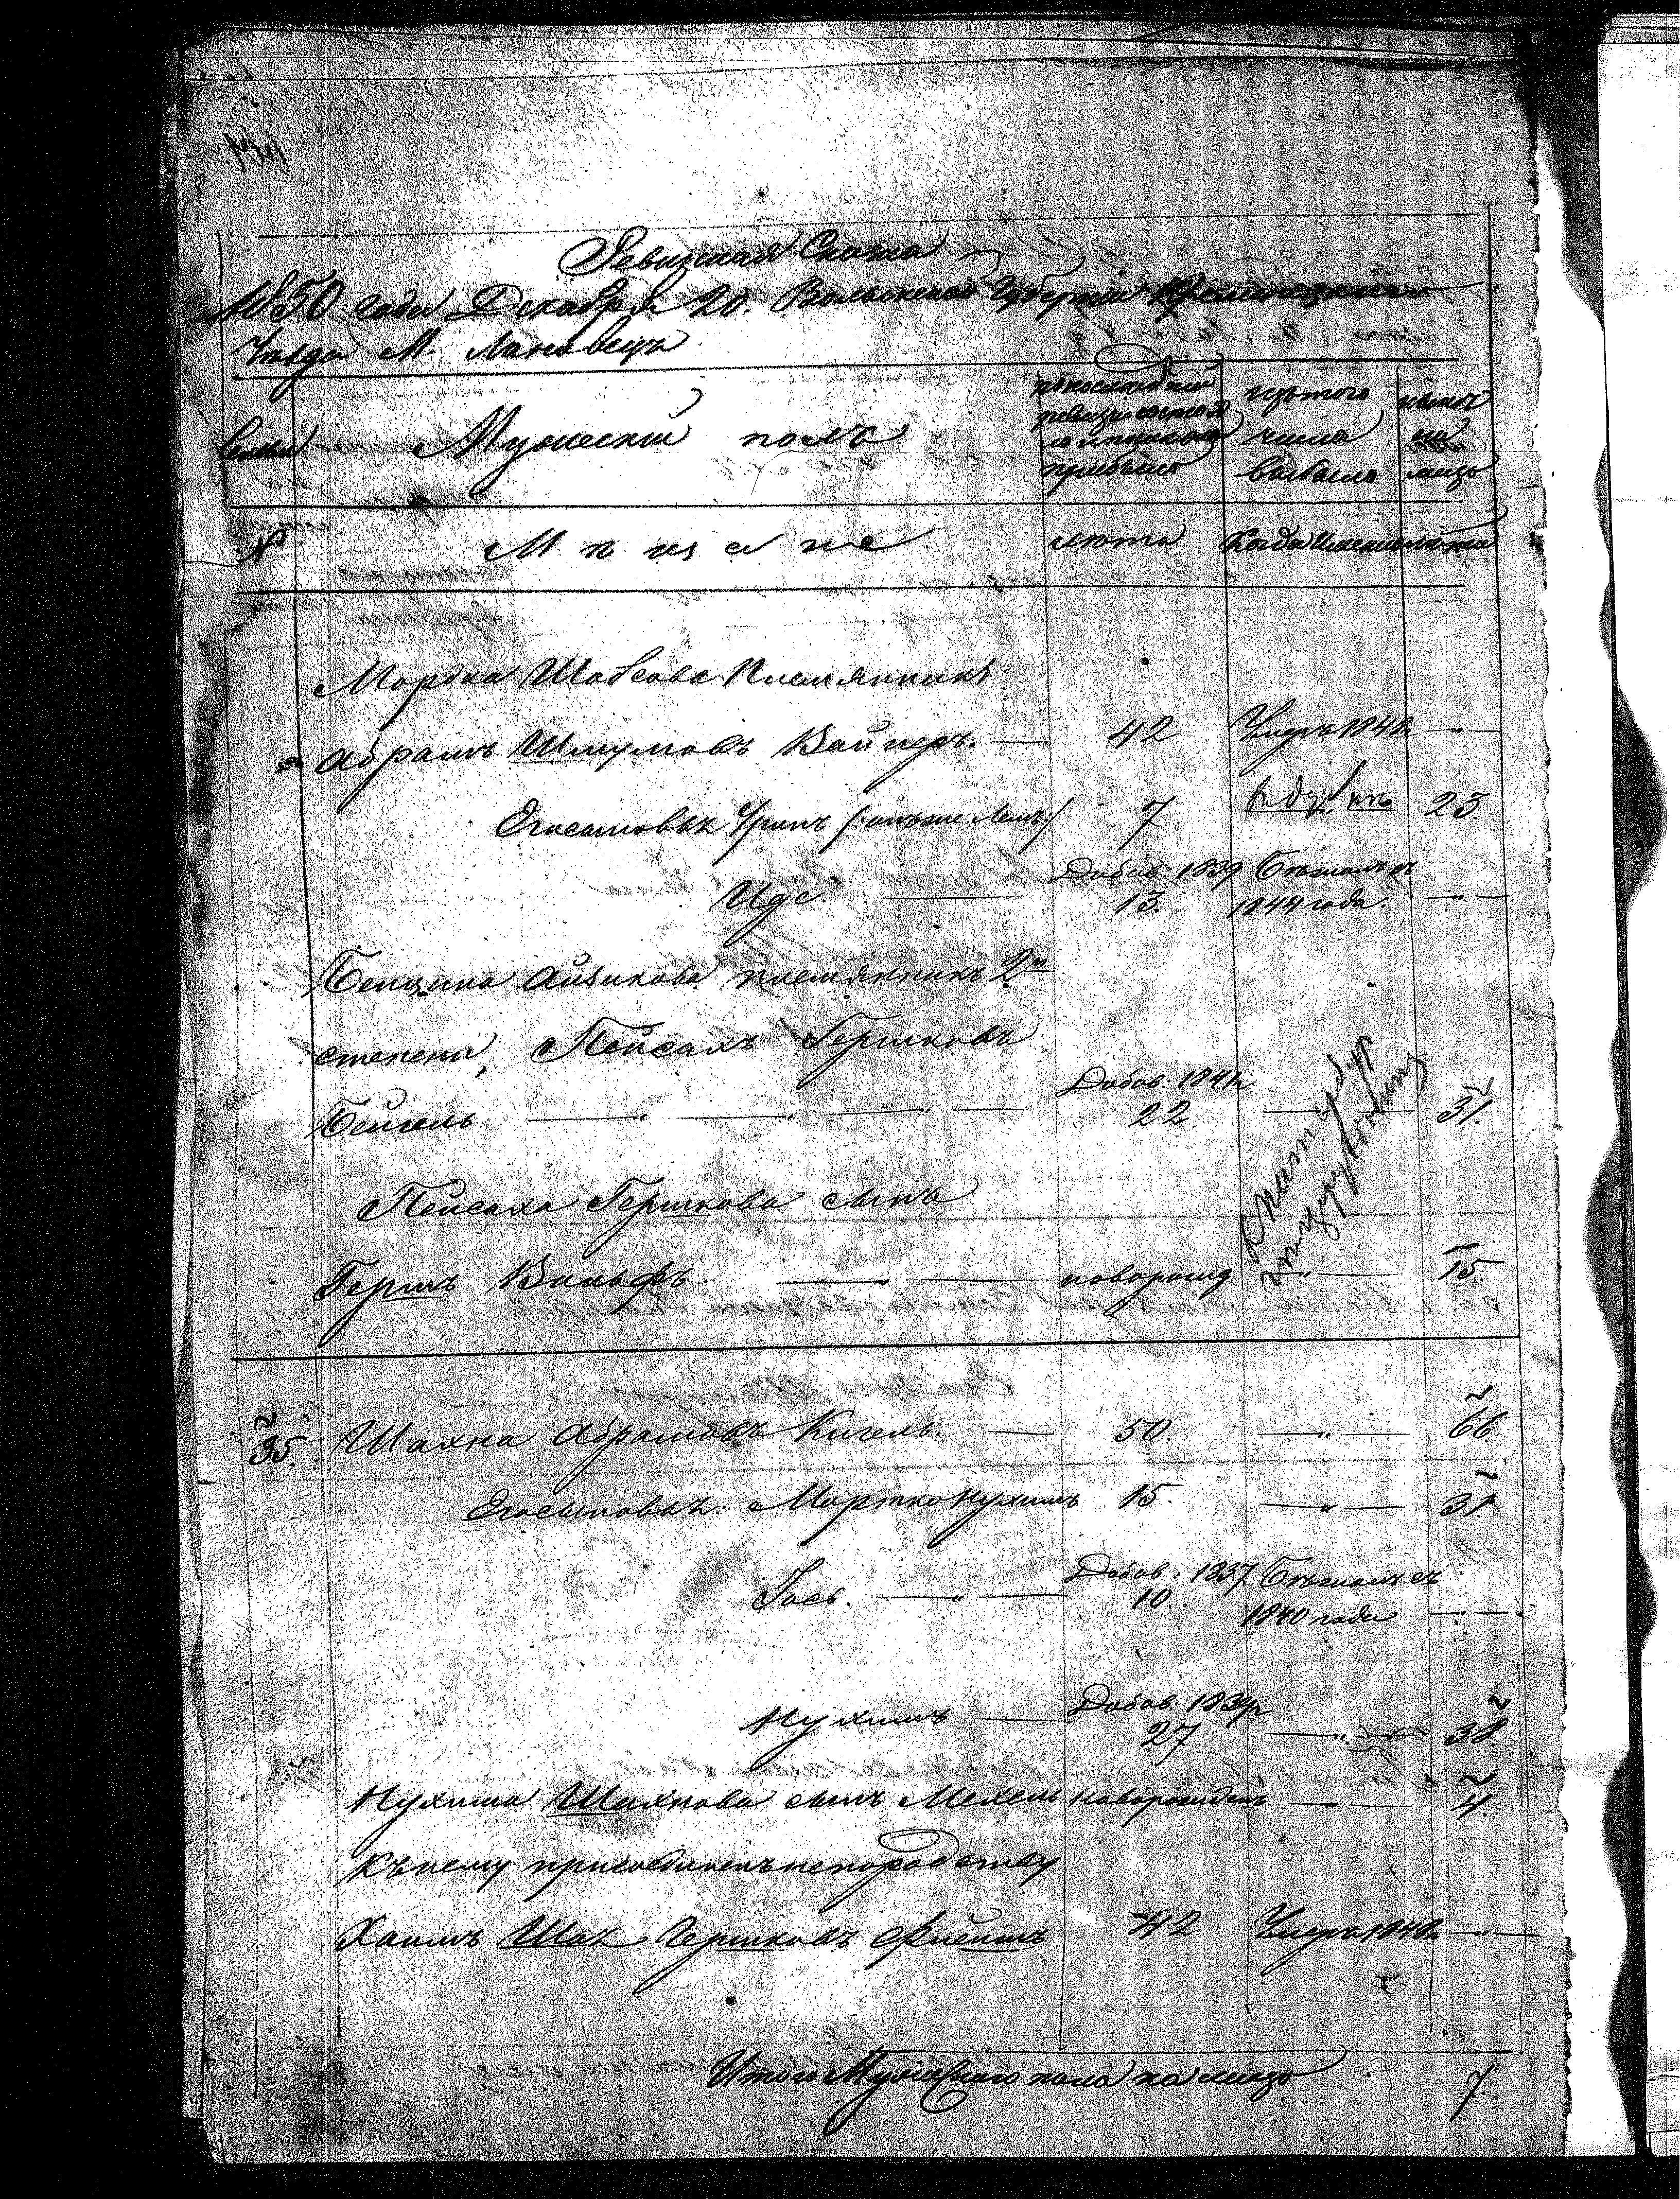 Ревизская Сказка
1850 года Декабря 20. Волынской Губернии Кременецкаго
Уезда М. Лановецъ
Семьи
Мужеский полъ
по последней ревизии состояло и после того прибыло
изъ того числа выбыло
ныне на лицо
№
Мѣщане
лета
Когда Именно
лета
Мордка Шовсова Племянникъ
Абрамъ Шмулювъ Вайнеръ. 42 Умеръ 184
Егосыновья Уринъ 7 23.
Иде. Добав. 1839 13. Бѣжалъ съ 1844 года.
Бенциона Айзикова племянникъ 2й
степени, Пейсахъ Гершковъ
Бейгель Добав. 184 22. 31.
Пейсаха Гершкова сынъ
Гершъ Вольфъ новорожд 15.
35. Шахна Абрамовъ Кигель 50. 66.
Егосыновья: Мортко Нухимъ 15. 31.
Гось. Добав. 1837 10 Бѣжалъ съ 1840 года
Нухимъ Добав. 1839 27 38.
Нухима Шахнова сынъ Мехель новорожденъ 4.
Къ нему присоединенъ не по родству
Хаимъ Шая Гершковъ 42 Умеръ 184
Итого Мужескаго пола на лицо 7